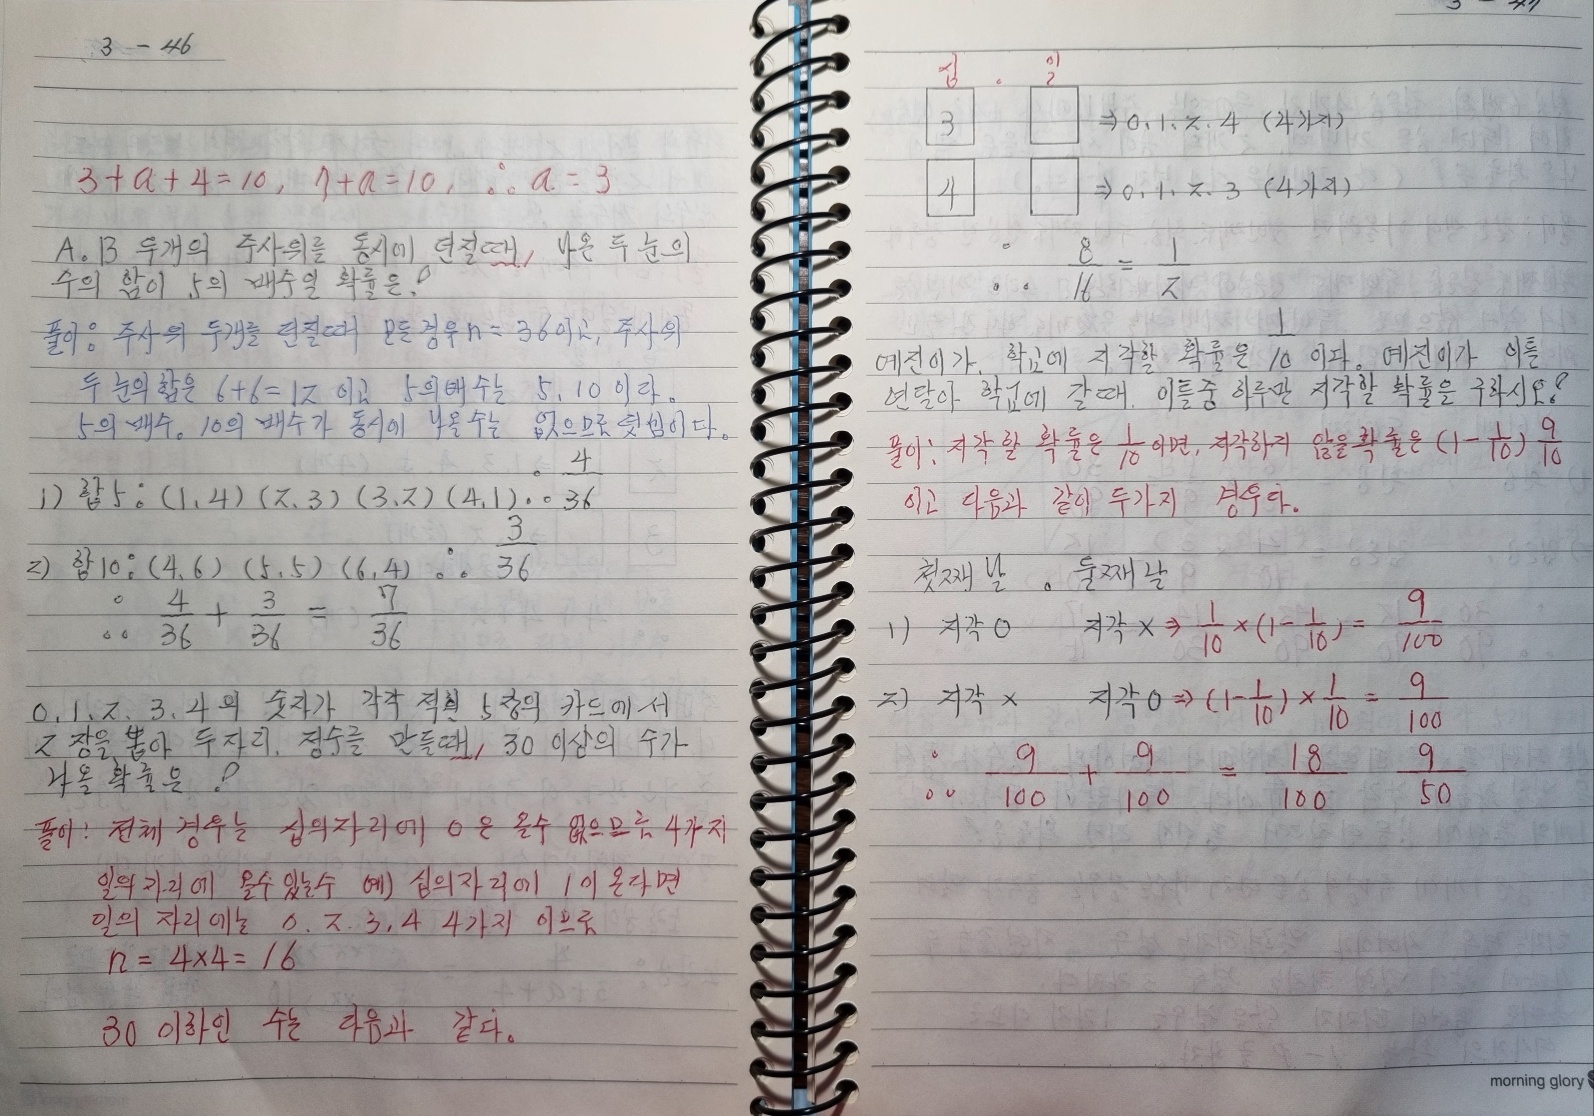 3 - 46
3+a+4=10, 7+a=10, ∴ a = 3
A.B 두개의 주사위를 동시에 던질때, 나온 두 눈의
수의 합이 5의 배수일 확률은?
풀이: 주사위 두개를 던질때 모든경우 n = 36이고, 주사위
두 눈의합은 6+6=12 이고 5의배수는 5, 10 이다.
5의 배수. 10의 배수가 동시에 나올수는 없으므로 덧셈이다.
1) 합5: (1,4) (2,3) (3,2) (4,1) ∴ 4/36
2) 합10: (4,6) (5,5) (6,4) ∴ 3/36
∴ 4/36 + 3/36 = 7/36
0.1.2.3.4의 숫자가 각각 적힌 5장의 카드에서
2장을 뽑아 두자리. 정수를 만들때, 30 이상의 수가
나올 확률은 ?
풀이: 전체 경우는 십의자리에 0은 올수 없으므로 4가지
일의자리에 올수있는수 예) 십의자리에 1이 온다면
일의 자리에는 0. 2. 3, 4 4가지 이므로
n = 4×4= 16
30 이하인 수는 다음과 같다.
3 - 47
십 . 일
3 ⇒ 0.1.2.4 (4가지)
4 ⇒ 0.1.2.3 (4가지)
∴ 8/16 = 1/2
예진이가. 학교에 지각할 확률은 1/10 이다. 예진이가 이틀
연달아 학교에 갈때. 이틀중 하루만 지각할 확률을 구하시오?
풀이: 지각 할 확률은 1/10 이면, 지각하지 않을확률은 (1-1/10) 9/10
이고 다음과 같이 두가지 경우다.
첫째날 . 둘째날
1) 지각 0 지각 × ⇒ 1/10 × (1-1/10) = 9/100
2) 지각 × 지각 0 ⇒ (1-1/10) × 1/10 = 9/100
∴ 9/100 + 9/100 = 18/100 9/50
morning glory